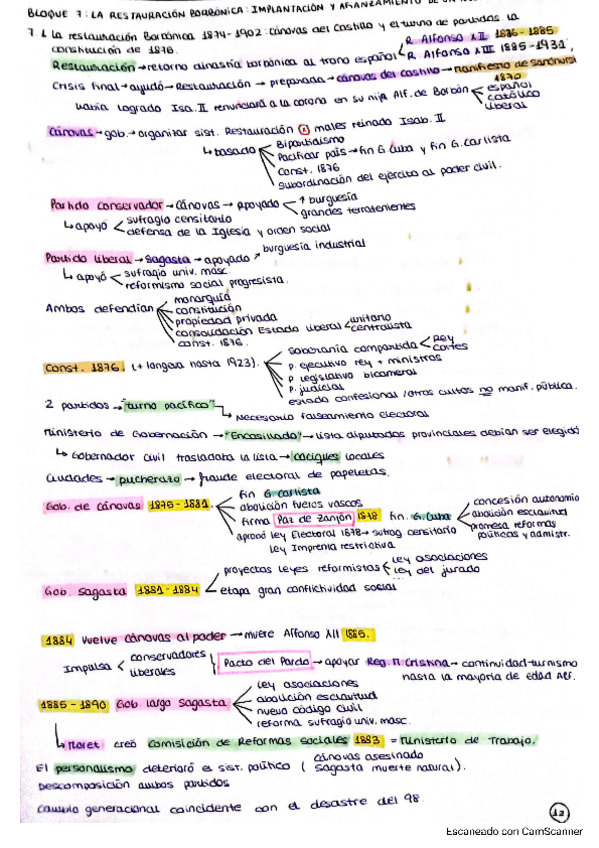 BLOQUE 7: LA RESTAURACIÓN BORBÓNICA: IMPLANTACIÓN Y AFIANZAMIENTO DE UN
7.1 La restauración Borbónica 1874-1902: cánovas del Castillo y el turno de partidos La
constitución de 1876.
Restauración → retorno dinastía borbónica al trono español R. Alfonso XII 1876-1885
R. Alfonso XIII 1885-1931,
Crisis final → ayudó → Restauración → preparada → cánovas del castillo → manifiesto de Sandhurst
1870
había logrado Isa.II renunciará a la corona en su hijo Alf. de Borbón español
católico
liberal
Cánovas → gob. → organizar sist. Restauración males reinado Isab. II
basado Bipartidismo
Pacificar país → fin G. Cuba y fin G. carlista
Const. 1876
Subordinación del ejército al poder civil.
Partido conservador → cánovas → apoyado ↑ burguesía
grandes terratenientes
apoyó sufragio censitario
defensa de la Iglesia y orden social
Partido liberal → Sagasta → apoyado burguesía industrial
apoyó sufragio univ. masc.
reformismo social progresista.
Ambos defendían monarquía
constitución
propiedad privada
consolidación Estado liberal unitario
centralista
const. 1876.
Const. 1876. (+ longeva hasta 1923). soberanía compartida Rey
cortes
p. ejecutivo rey + ministros
p. legislativo bicameral
p. judicial
estado confesional / otros cultos no manif. pública.
2 partidos → "turno pacífico" → Necesario falseamiento electoral
Ministerio de Gobernación → "Encasillado" → lista diputados provinciales debían ser elegido
Gobernador civil trasladaba la lista → caciques locales
Ciudades → pucherazo → fraude electoral de papeletas.
Gob. de cánovas 1875-1881. fin G. carlista
abolición fueros vascos
firma Paz de Zanjón 1878 fin. G. Cuba concesión autonomía
abolición esclavitud
promesa reformas
políticas y admistr.
aprobó ley Electoral 1878 → sufrag. censitario
ley Imprenta restrictiva
Gob. Sagasta 1881-1884 proyectos leyes reformistas ley asociaciones
ley del jurado
etapa gran conflictividad social
1884 vuelve cánovas al poder → muere Alfonso XII 1885.
Impulsa conservadores
liberales
Pacto del Pardo → apoyar Reg. M. Cristina → continuidad-turnismo
hasta la mayoría de edad Alf.
1885-1890 Gob. largo Sagasta ley asociaciones
abolición esclavitud
nuevo código civil
reforma sufragio univ. masc.
Moret creó Comisión de Reformas Sociales 1883 = Ministerio de Trabajo.
El personalismo deterioró el sist. político ( cánovas asesinado
sagasta muerte natural ).
Descomposición ambos partidos
cambio generacional coincidente con el desastre del 98.
12
Escaneado con CamScanner